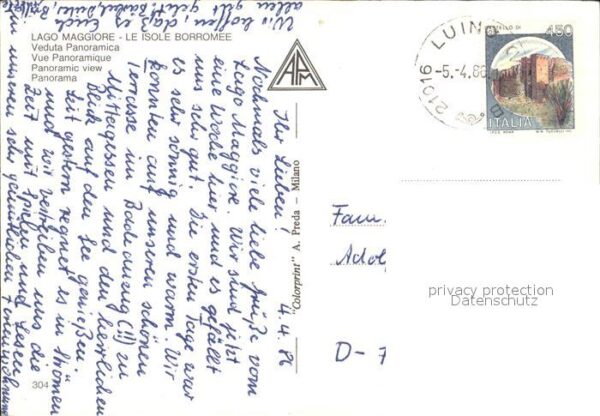 LAGO MAGGIORE - LE ISOLE BORROMEE
Veduta Panoramica
Vue Panoramique
Panoramic view
Panorama
304
"Colorprint" A. Preda - Milano
4.4.86
Ihr Lieben!
Nochmals viele liebe Grüße vom
Lago Maggiore. Wir sind jetzt
eine Woche hier und es gefällt
uns sehr gut. Die ersten Tage war
es sehr sonnig und warm. Wir
konnten auf unseren schönen
Terrasse im Badeanzug (!!) zu
Mittagessen und den herrlichen
Blick auf den See genießen.
Seit gestern regnet es in Strömen
und wir vertreiben uns die
Zeit mit Spielen und Lesen
in unseren sehr gemütlichen Ferienwohnung
Wir hoffen, daß es Euch
allen gut geht.
Fam.
Adol
D-7
LUINO
21016
-5.-4.86
450
ITALIA
privacy protection
Datenschutz